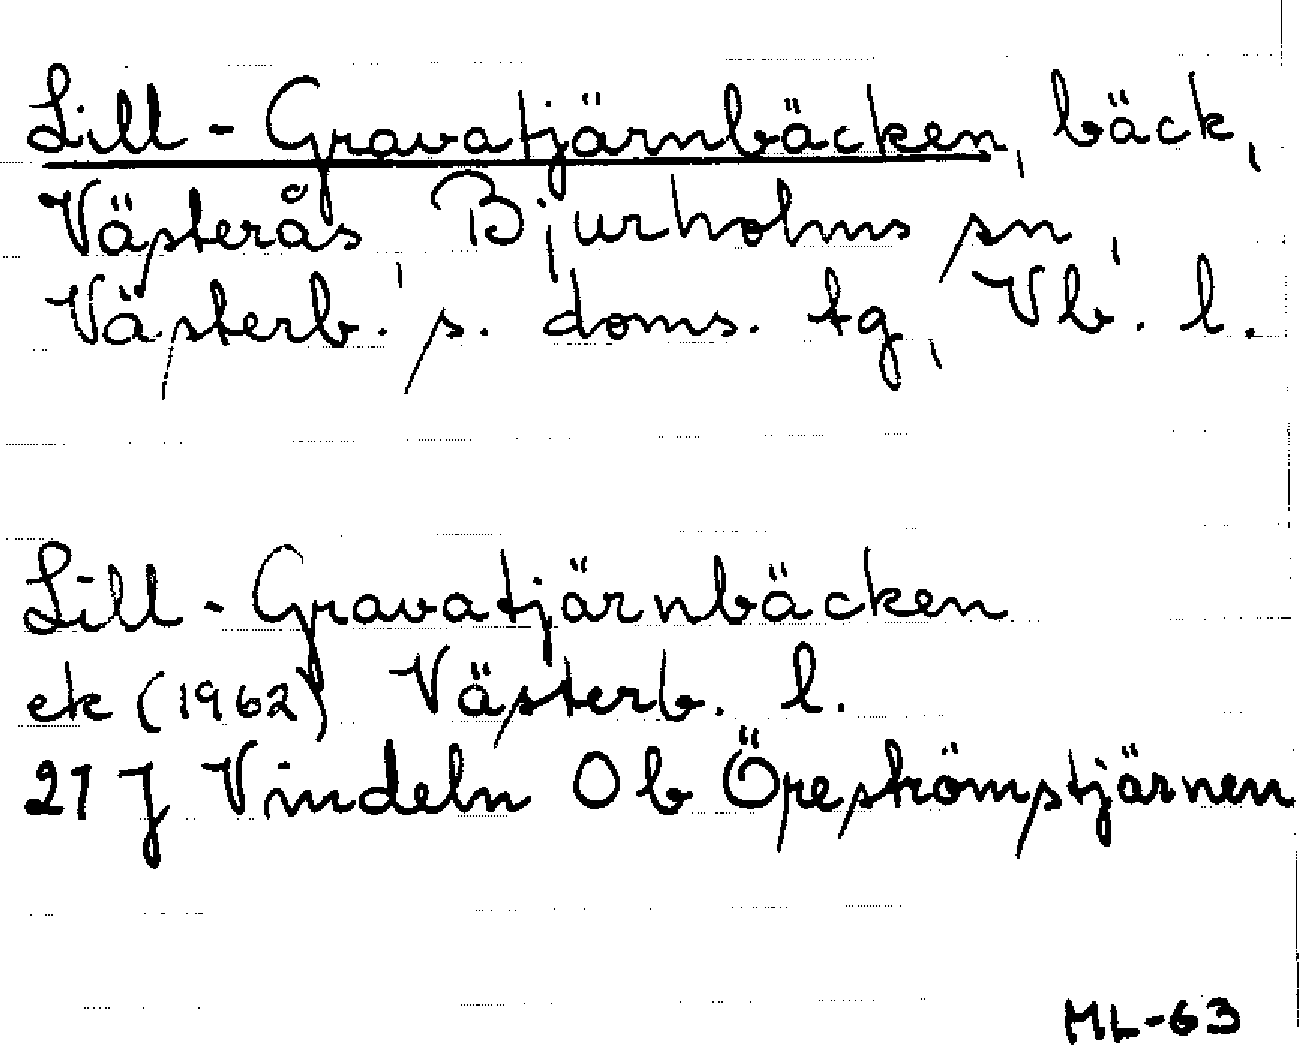 Lill-Gravatjärnbäcken, bäck,
Västerås, Bjurholms sn,
Västerb. s. doms. tg, Vb. l.
Lill-Gravatjärnbäcken
ek (1962) Västerb. l.
21 J Vindeln Ob Öreströmstjärnen
ML-63